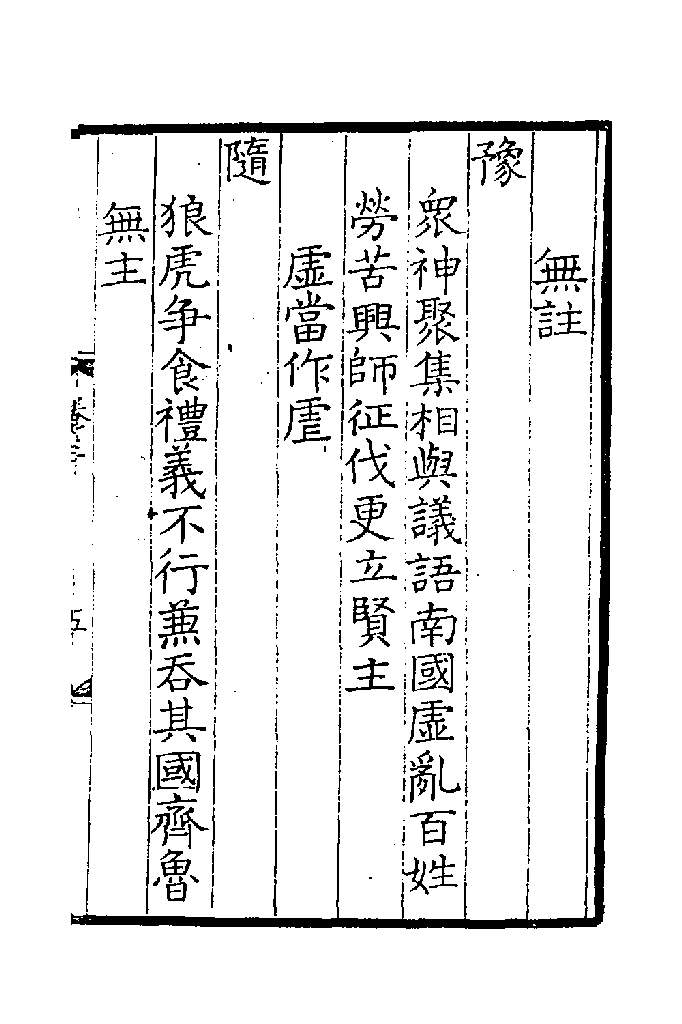 無註
豫
衆神聚集相與議語南國虛亂百姓
勞苦興師征伐更立賢主
虛當作虐
隨
狼虎争食禮義不行兼吞其國齊魯
無主